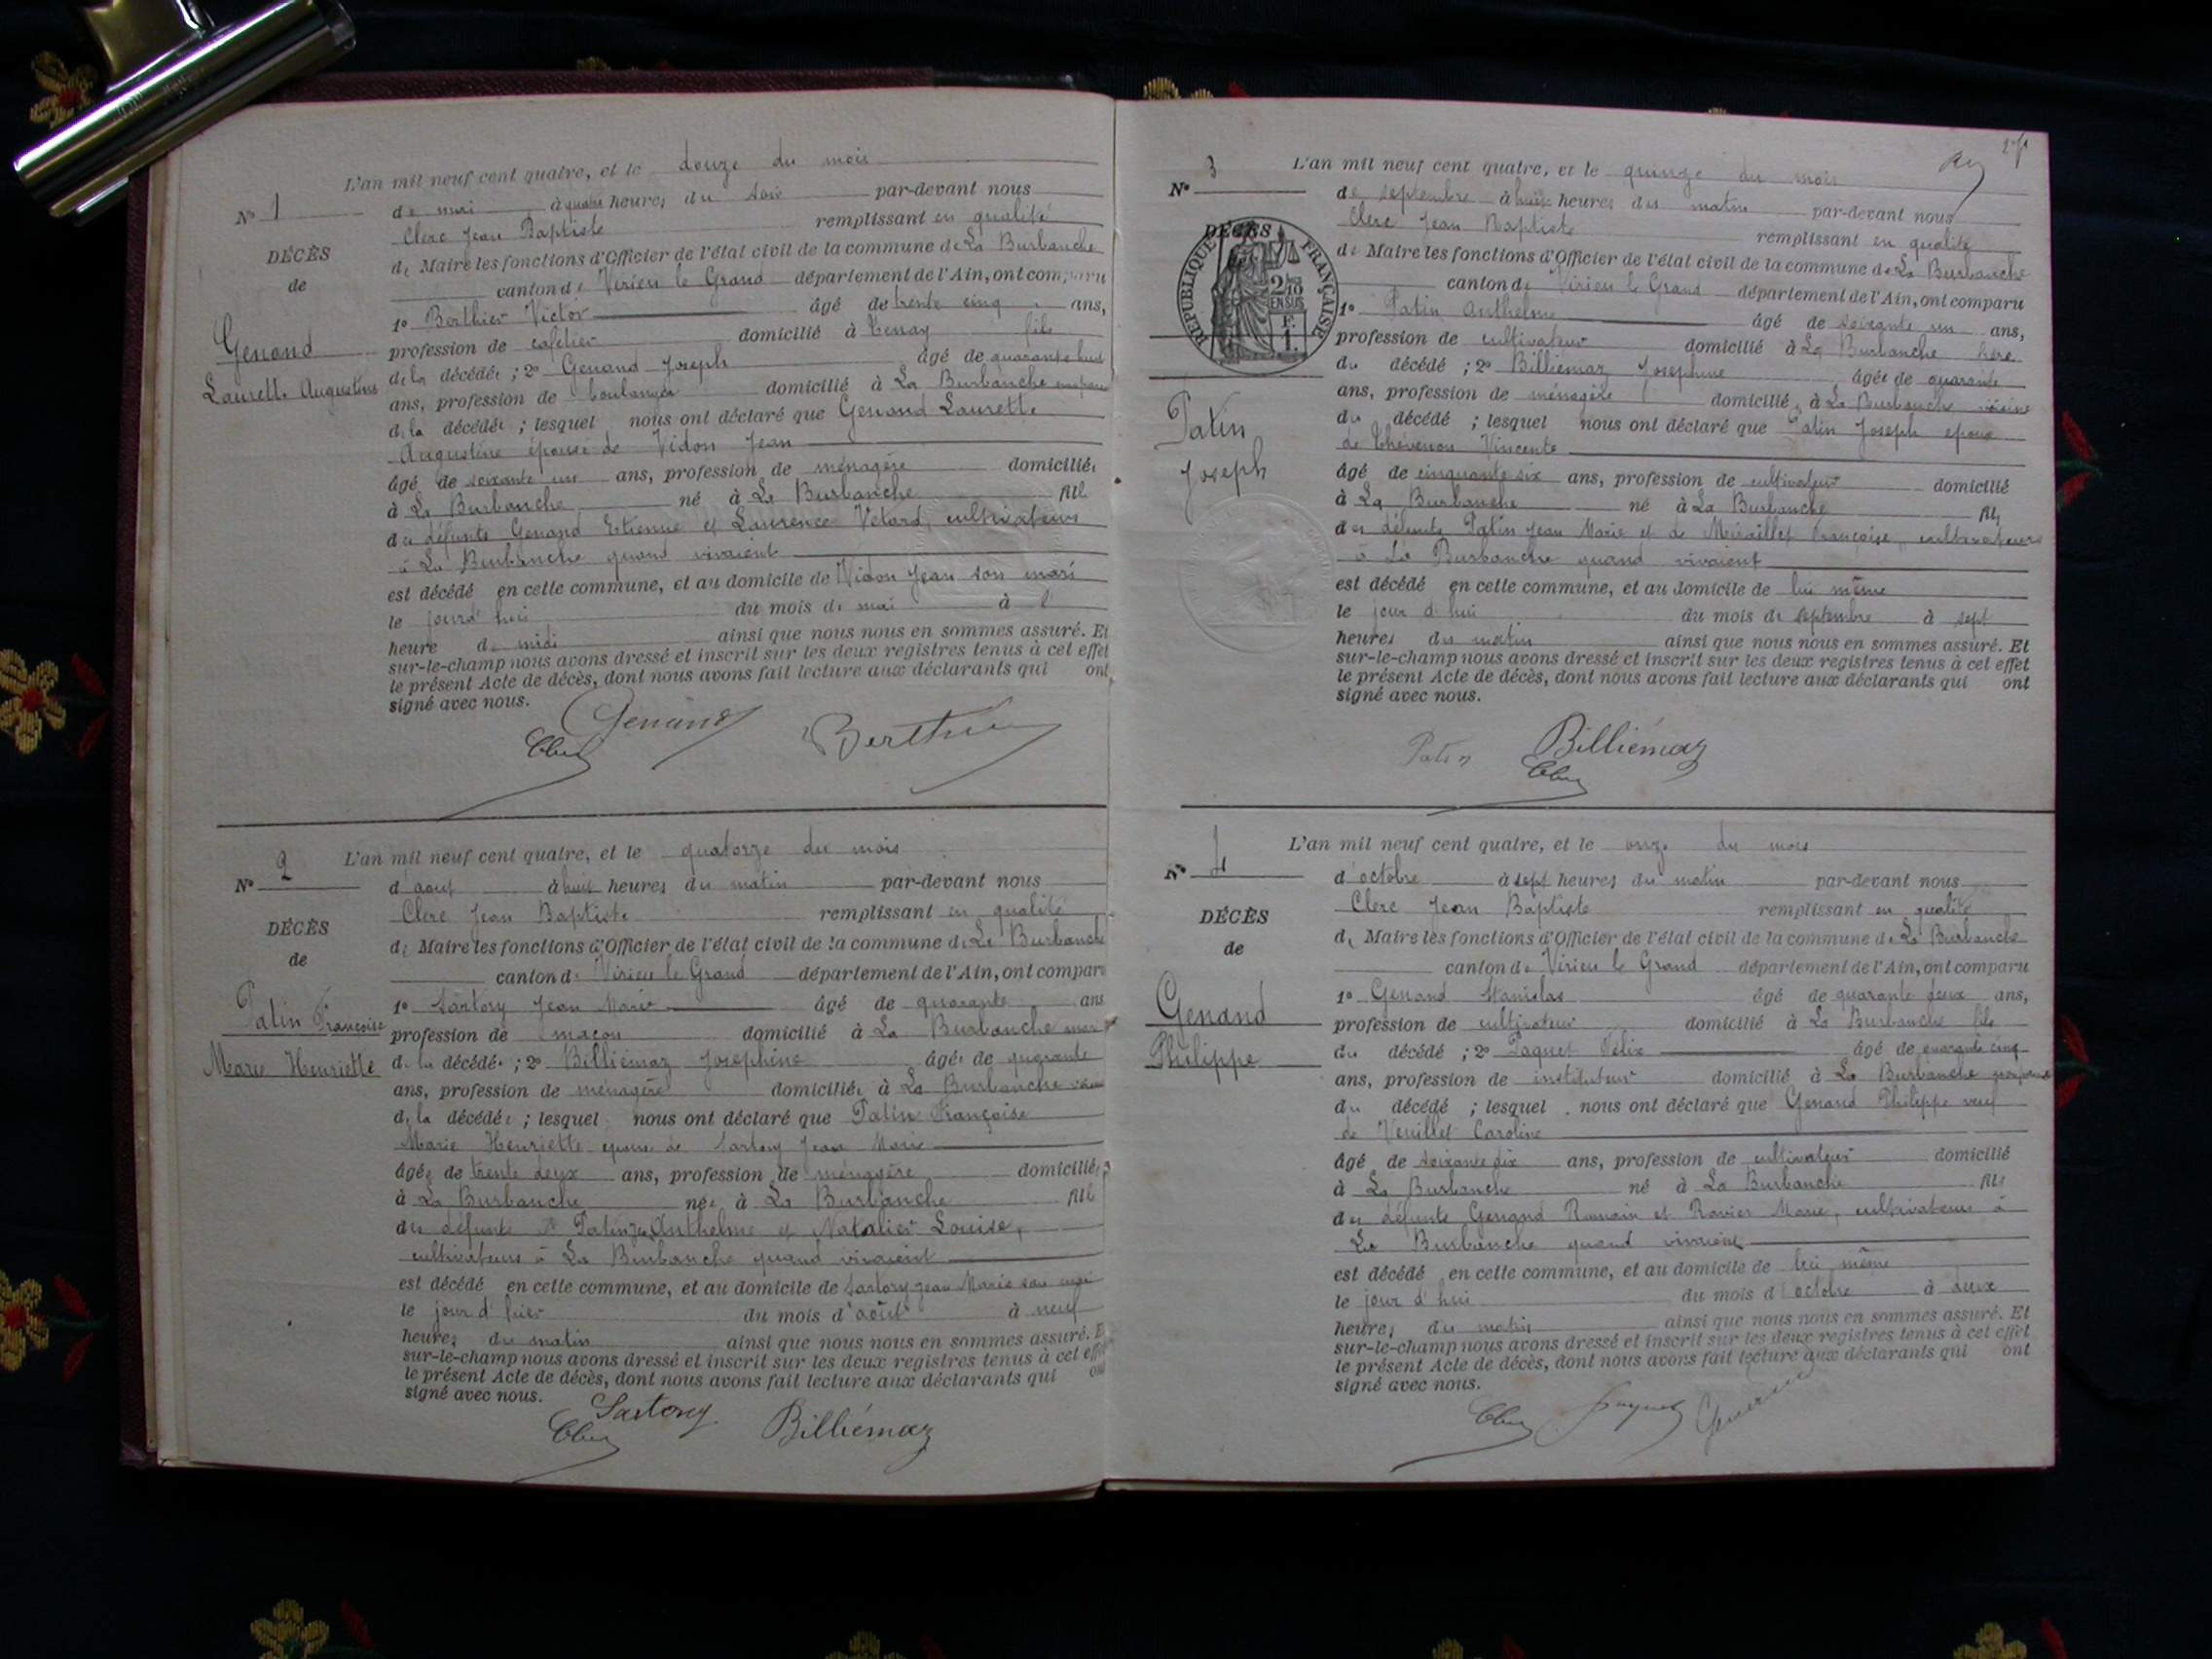 L'an mil neuf cent quatre, et le douze du mois
N° 1 de mai à quatre heures du soir par-devant nous
Clerc Jean Baptiste remplissant en qualité
DÉCÈS
de Maire les fonctions d'Officier de l'état civil de la commune de La Burbanche
de
canton de Virieu le Grand département de l'Ain, ont comparu
1° Berthier Victor âgé de trente cinq ans,
Genand
profession de cafetier domicilié à Tenay fils
Laurette Augustine
de la décédée ; 2° Genand Joseph âgé de quarante huit
ans, profession de boulanger domicilié à La Burbanche
de la décédée ; lesquel nous ont déclaré que Genand Laurette
Augustine épouse de Vidon Jean
âgé de soixante un ans, profession de ménagère domiciliée
à La Burbanche né à La Burbanche fill
des défunts Genand Etienne et Laurence Vetard, cultivateurs
à La Burbanche quand vivaient
est décédé en cette commune, et au domicile de Vidon Jean son mari
le jourd'hui du mois de mai à l'
heure de midi ainsi que nous nous en sommes assuré. Et
sur-le-champ nous avons dressé et inscrit sur les deux registres tenus à cet effet
le présent Acte de décès, dont nous avons fait lecture aux déclarants qui ont
signé avec nous.
Genand Berthier
Clerc
L'an mil neuf cent quatre, et le quatorze du mois
N° 2 d'aout à huit heures du matin par-devant nous
Clerc Jean Baptiste remplissant en qualité
DÉCÈS
de Maire les fonctions d'Officier de l'état civil de la commune de La Burbanche
de
canton de Virieu le Grand département de l'Ain, ont comparu
1° Sartory Jean Marie âgé de quarante ans
Patin Françoise
profession de maçon domicilié à La Burbanche mari
Marie Henriette
de la décédée ; 2° Billiémaz Josephine âgée de quarante
ans, profession de ménagère domiciliée à La Burbanche
de la décédée ; lesquel nous ont déclaré que Patin Françoise
Marie Henriette épouse de Sartory Jean Marie
âgée de trente deux ans, profession de ménagère domiciliée
à La Burbanche née à La Burbanche fill
des défunts Anthelme et Natalier Louise,
cultivateurs à La Burbanche quand vivaient
est décédé en cette commune, et au domicile de Sartory Jean Marie son mari
le jour d'hier du mois d'août à neuf
heures du matin ainsi que nous nous en sommes assuré. E
sur-le-champ nous avons dressé et inscrit sur les deux registres tenus à cet effet
le présent Acte de décès, dont nous avons fait lecture aux déclarants qui ont
signé avec nous.
Sartory
Clerc Billiémaz
271
L'an mil neuf cent quatre, et le quinze du mois
N° 3 de septembre à huit heures du matin par-devant nous
Clerc Jean Baptiste remplissant en qualité
DÉCÈS
RÉPUBLIQUE FRANÇAISE
2/10 EN SUS
F. 1.
de Maire les fonctions d'Officier de l'état civil de la commune de La Burbanche
canton de Virieu le Grand département de l'Ain, ont comparu
1° Patin Anthelme âgé de soixante un ans,
profession de cultivateur domicilié à La Burbanche frère
du décédé ; 2° Billiémaz Josephine âgée de quarante
ans, profession de ménagère domiciliée à La Burbanche voisine
Patin
Joseph
du décédé ; lesquel nous ont déclaré que Patin Joseph époux
de Thévenon Vincente
âgé de cinquante six ans, profession de cultivateur domicilié
à La Burbanche né à La Burbanche fils
des défunts Patin Jean Marie et de Miraillet Françoise, cultivateurs
à La Burbanche quand vivaient
est décédé en cette commune, et au domicile de lui même
le jour d'hui du mois de septembre à sept
heures du matin ainsi que nous nous en sommes assuré. Et
sur-le-champ nous avons dressé et inscrit sur les deux registres tenus à cet effet
le présent Acte de décès, dont nous avons fait lecture aux déclarants qui ont
signé avec nous.
Patin Billiémaz
Clerc
L'an mil neuf cent quatre, et le onze du mois
N° 4 d'octobre à sept heures du matin par-devant nous
Clerc Jean Baptiste remplissant en qualité
DÉCÈS
de Maire les fonctions d'Officier de l'état civil de la commune de La Burbanche
de
canton de Virieu le Grand département de l'Ain, ont comparu
1° Genand Stanislas âgé de quarante deux ans,
Genand
profession de cultivateur domicilié à La Burbanche fils
Philippe
du décédé ; 2° Paquet Félix âgé de quarante cinq
ans, profession de instituteur domicilié à La Burbanche
du décédé ; lesquel nous ont déclaré que Genand Philippe veuf
de Veuillet Caroline
âgé de soixante dix ans, profession de cultivateur domicilié
à La Burbanche né à La Burbanche fils
des défunts Genand Romain et Ravier Marie, cultivateurs à
La Burbanche quand vivaient
est décédé en cette commune, et au domicile de lui même
le jour d'hui du mois d'octobre à deux
heures du matin ainsi que nous nous en sommes assuré. Et
sur-le-champ nous avons dressé et inscrit sur les deux registres tenus à cet effet
le présent Acte de décès, dont nous avons fait lecture aux déclarants qui ont
signé avec nous.
Clerc Paquet Genand